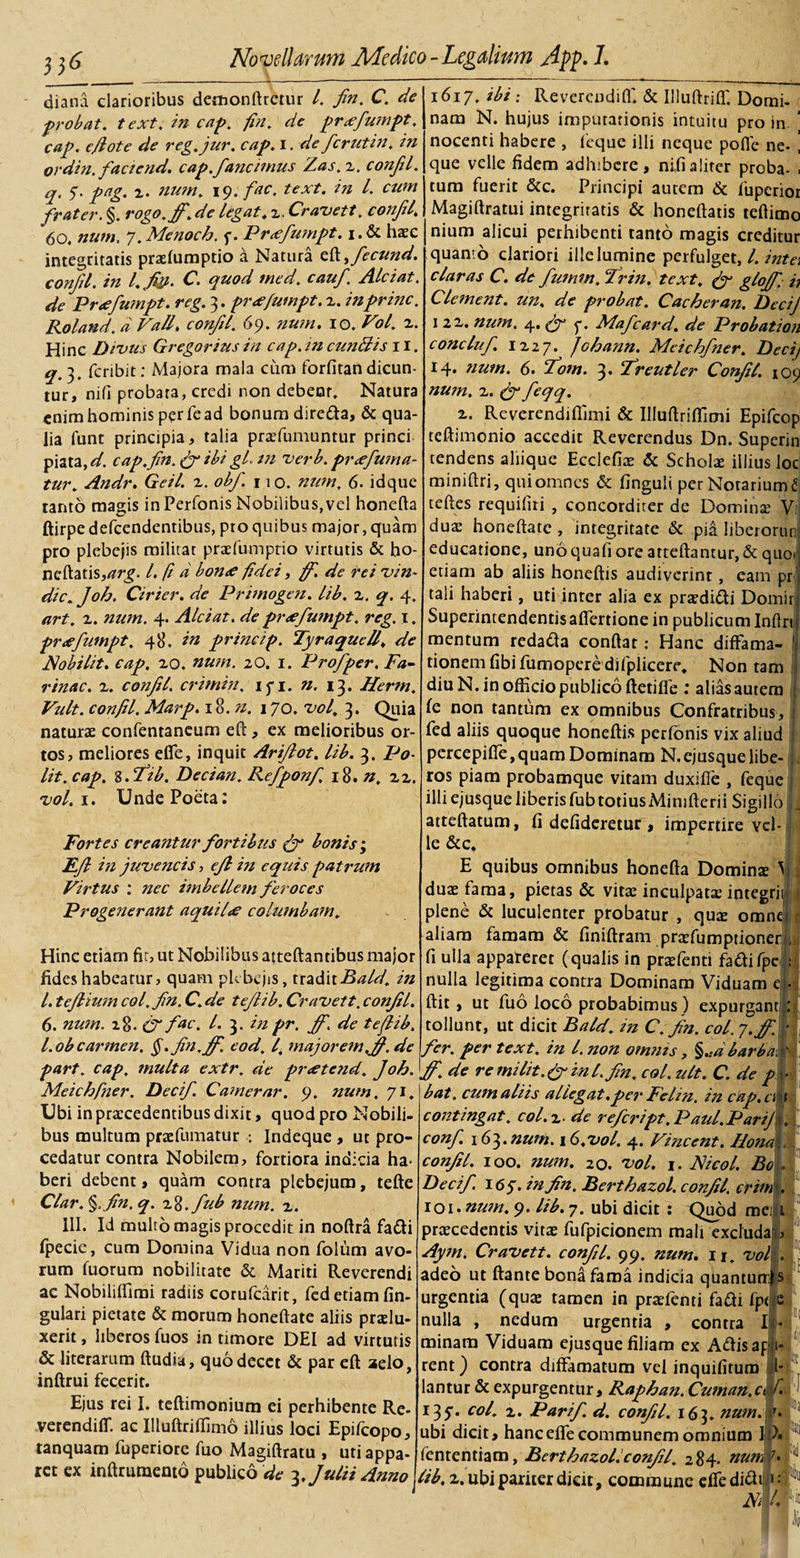 336 Novellarum Medico-Legalium App. I.
dianâ clarioribus demonstretur l. fin. C. de
probat. text. in cap. fin. de præsumpt.
cap. estote de reg. jur. cap. 1. de scrutin. in
ordin. faciend. cap. sancimus Zas. 2. consil.
q. 5. pag. 2. num. 19. fac. text. in l. cum
frater. §. rogo. ff. de legat. 2. Cravett. consil.
60. num. 7. Menoch. 5. Præsumpt. 1. & hæc
integritatis præsumptio à Naturâ est, secund.
consil. in l. fin. C. quod med. caus. Alciat.
de Præsumpt. reg. 3. præsumpt. 2. in princ.
Roland. à Vall. consil. 69. num. 10. Vol. 2.
Hinc Divus Gregorius in cap. in cunctis 11.
q. 3. scribit: Majora mala cùm forsitan dicun-
tur, nisi probata, credi non debent. Natura
enim hominis per se ad bonum directa, & qua-
lia sunt principia, talia præsumuntur princi
piata, d. cap. fin. & ibi gl. in verb. præsuma-
tur. Andr. Geil. 2. obs. 110. num. 6. idque
tantò magis in Personis Nobilibus, vel honesta
stirpe descendentibus, pro quibus major, quàm
pro plebejis militat præsumptio virtutis & ho-
nestatis, arg. l. si à bonæ fidei, ff. de rei vin-
dic. Joh. Cirier. de Primogen. lib. 2. q. 4.
art. 2. num. 4. Alciat. de præsumpt. reg. 1.
præsumpt. 48. in princip. Tyraquell. de
Nobilit. cap. 20. num. 20. 1. Prosper. Fa-
rinac. 2. consil. crimin. 151. n. 13. Herm.
Vult. consil. Marp. 18. n. 170. vol. 3. Quia
naturæ consentaneum est, ex melioribus or-
tos, meliores esse, inquit Aristot. lib. 3. Po-
lit. cap. 8. Tib. Decian. Respons. 18. n. 22.
vol. 1. Unde Poëta:
Fortes creantur fortibus & bonis;
Est in juvencis, est in equis patrum
Virtus: nec imbellem feroces
Progenerant aquilæ columbam.
Hinc etiam fit, ut Nobilibus attestantibus major
fides habeatur, quam plebejis, tradit Bald. in
l. testium col. fin. C. de testib. Cravett. consil.
6. num. 28. & fac. l. 3. in pr. ff. de testib.
l. ob carmen. §. fin. ff. eod. l. majorem ff. de
part. cap. multa extr. de prætend. Joh.
Meichsner. Decis. Camerar. 9. num. 71.
Ubi in præcedentibus dixit, quod pro Nobili-
bus multum præsumatur: Indeque, ut pro-
cedatur contra Nobilem, fortiora indicia ha-
beri debent, quàm contra plebejum, teste
Clar. §. fin. q. 28. sub num. 2.
III. Id multò magis procedit in nostrâ facti
specie, cum Domina Vidua non solùm avo-
rum suorum nobilitate & Mariti Reverendi
ac Nobilissimi radiis coruscârit, sed etiam sin-
gulari pietate & morum honestate aliis prælu-
xerit, liberos suos in timore DEI ad virtutis
& literarum studia, quò decet & par est zelo,
instrui fecerit.
Ejus rei I. testimonium ei perhibente Re-
verendiss. ac Illustrissimô illius loci Episcopo,
tanquam superiore suo Magistratu, uti appa-
ret ex instrumentô publicô de 3. Julii Anno
1617. ibi: Reverendiss. & Illustriss. Domi-
nam N. hujus imputationis intuitu pro in
nocenti habere, seque illi neque posse ne-
que velle fidem adhibere, nisi aliter proba-
tum fuerit &c. Principi autem & superior
Magistratui integritatis & honestatis testimo
nium alicui perhibenti tantò magis creditur
quantò clariori ille lumine perfulget, l. inter
claras C. de summ. Trin. text. & gloss. i
Clement. un. de probat. Cacheran. Decis
122. num. 4. & 5. Mascard. de Probation
conclus. 1227. Johann. Meichsner. Decis
14. num. 6. Tom. 3. Treutler Consil. 109
num. 2. & seqq.
2. Reverendissimi & Illustrissimi Episcop
testimonio accedit Reverendus Dn. Superin
tendens aliique Ecclesiæ & Scholæ illius loc
ministri, qui omnes & singuli per Notarium &
testes requisiti, concorditer de Dominæ Vi
duæ honestate, integritate & piâ liberorum
educatione, unô quasi ore attestantur, & quod
etiam ab aliis honestis audiverint, eam pr
tali haberi, uti inter alia ex prædicti Domini
Superintendentis assertione in publicum Instru
mentum redacta constat: Hanc diffama-
tionem sibi summopere displicere. Non tam
diu N. in officio publicô stetisse: aliàs autem
se non tantùm ex omnibus Confratribus,
sed aliis quoque honestis personis vix aliud
percepisse, quam Dominam N. ejusque libe-
ros piam probamque vitam duxisse, seque
illi ejusque liberis sub totius Ministerii Sigillo
attestatum, si desideretur, impertire vel-
le &c.
E quibus omnibus honesta Dominæ V
duæ fama, pietas & vitæ inculpatæ integri
plenè & luculenter probatur, quæ omne
aliam famam & sinistram præsumptionem
si ulla appareret (qualis in præsenti facti spec
nulla legitima contra Dominam Viduam e
stit, ut suô locô probabimus) expurgant
tollunt, ut dicit Bald. in C. fin. col. 7. ff.
fer. per text. in l. non omnis, §. à barba
ff. de re milit. & in l. fin. col. ult. C. de p
bat. cum aliis allegat. per Felin. in cap. c
contingat. col. 2. de rescript. Paul. Paris
cons. 163. num. 16. vol. 4. Vincent. Hond
consil. 100. num. 20. vol. 1. Nicol. Bo
Decis. 165. in fin. Berthazol. consil. crim
101. num. 9. lib. 7. ubi dicit: Quòd me
præcedentis vitæ suspicionem mali excluda
Aym. Cravett. consil. 99. num. 11. vol
adeò ut stante bonâ famâ indicia quantum
urgentia (quæ tamen in præsenti facti spe
nulla, nedum urgentia, contra
minam Viduam ejusque filiam ex Actis ap
rent) contra diffamatum vel inquisitum
lantur & expurgentur, Raphan. Cuman.
135. col. 2. Paris. d. consil. 163. num.
ubi dicit, hanc esse communem omnium
sententiam, Berthazol. consil. 284. num
lib. 2. ubi pariter dicit, commune esse dicti